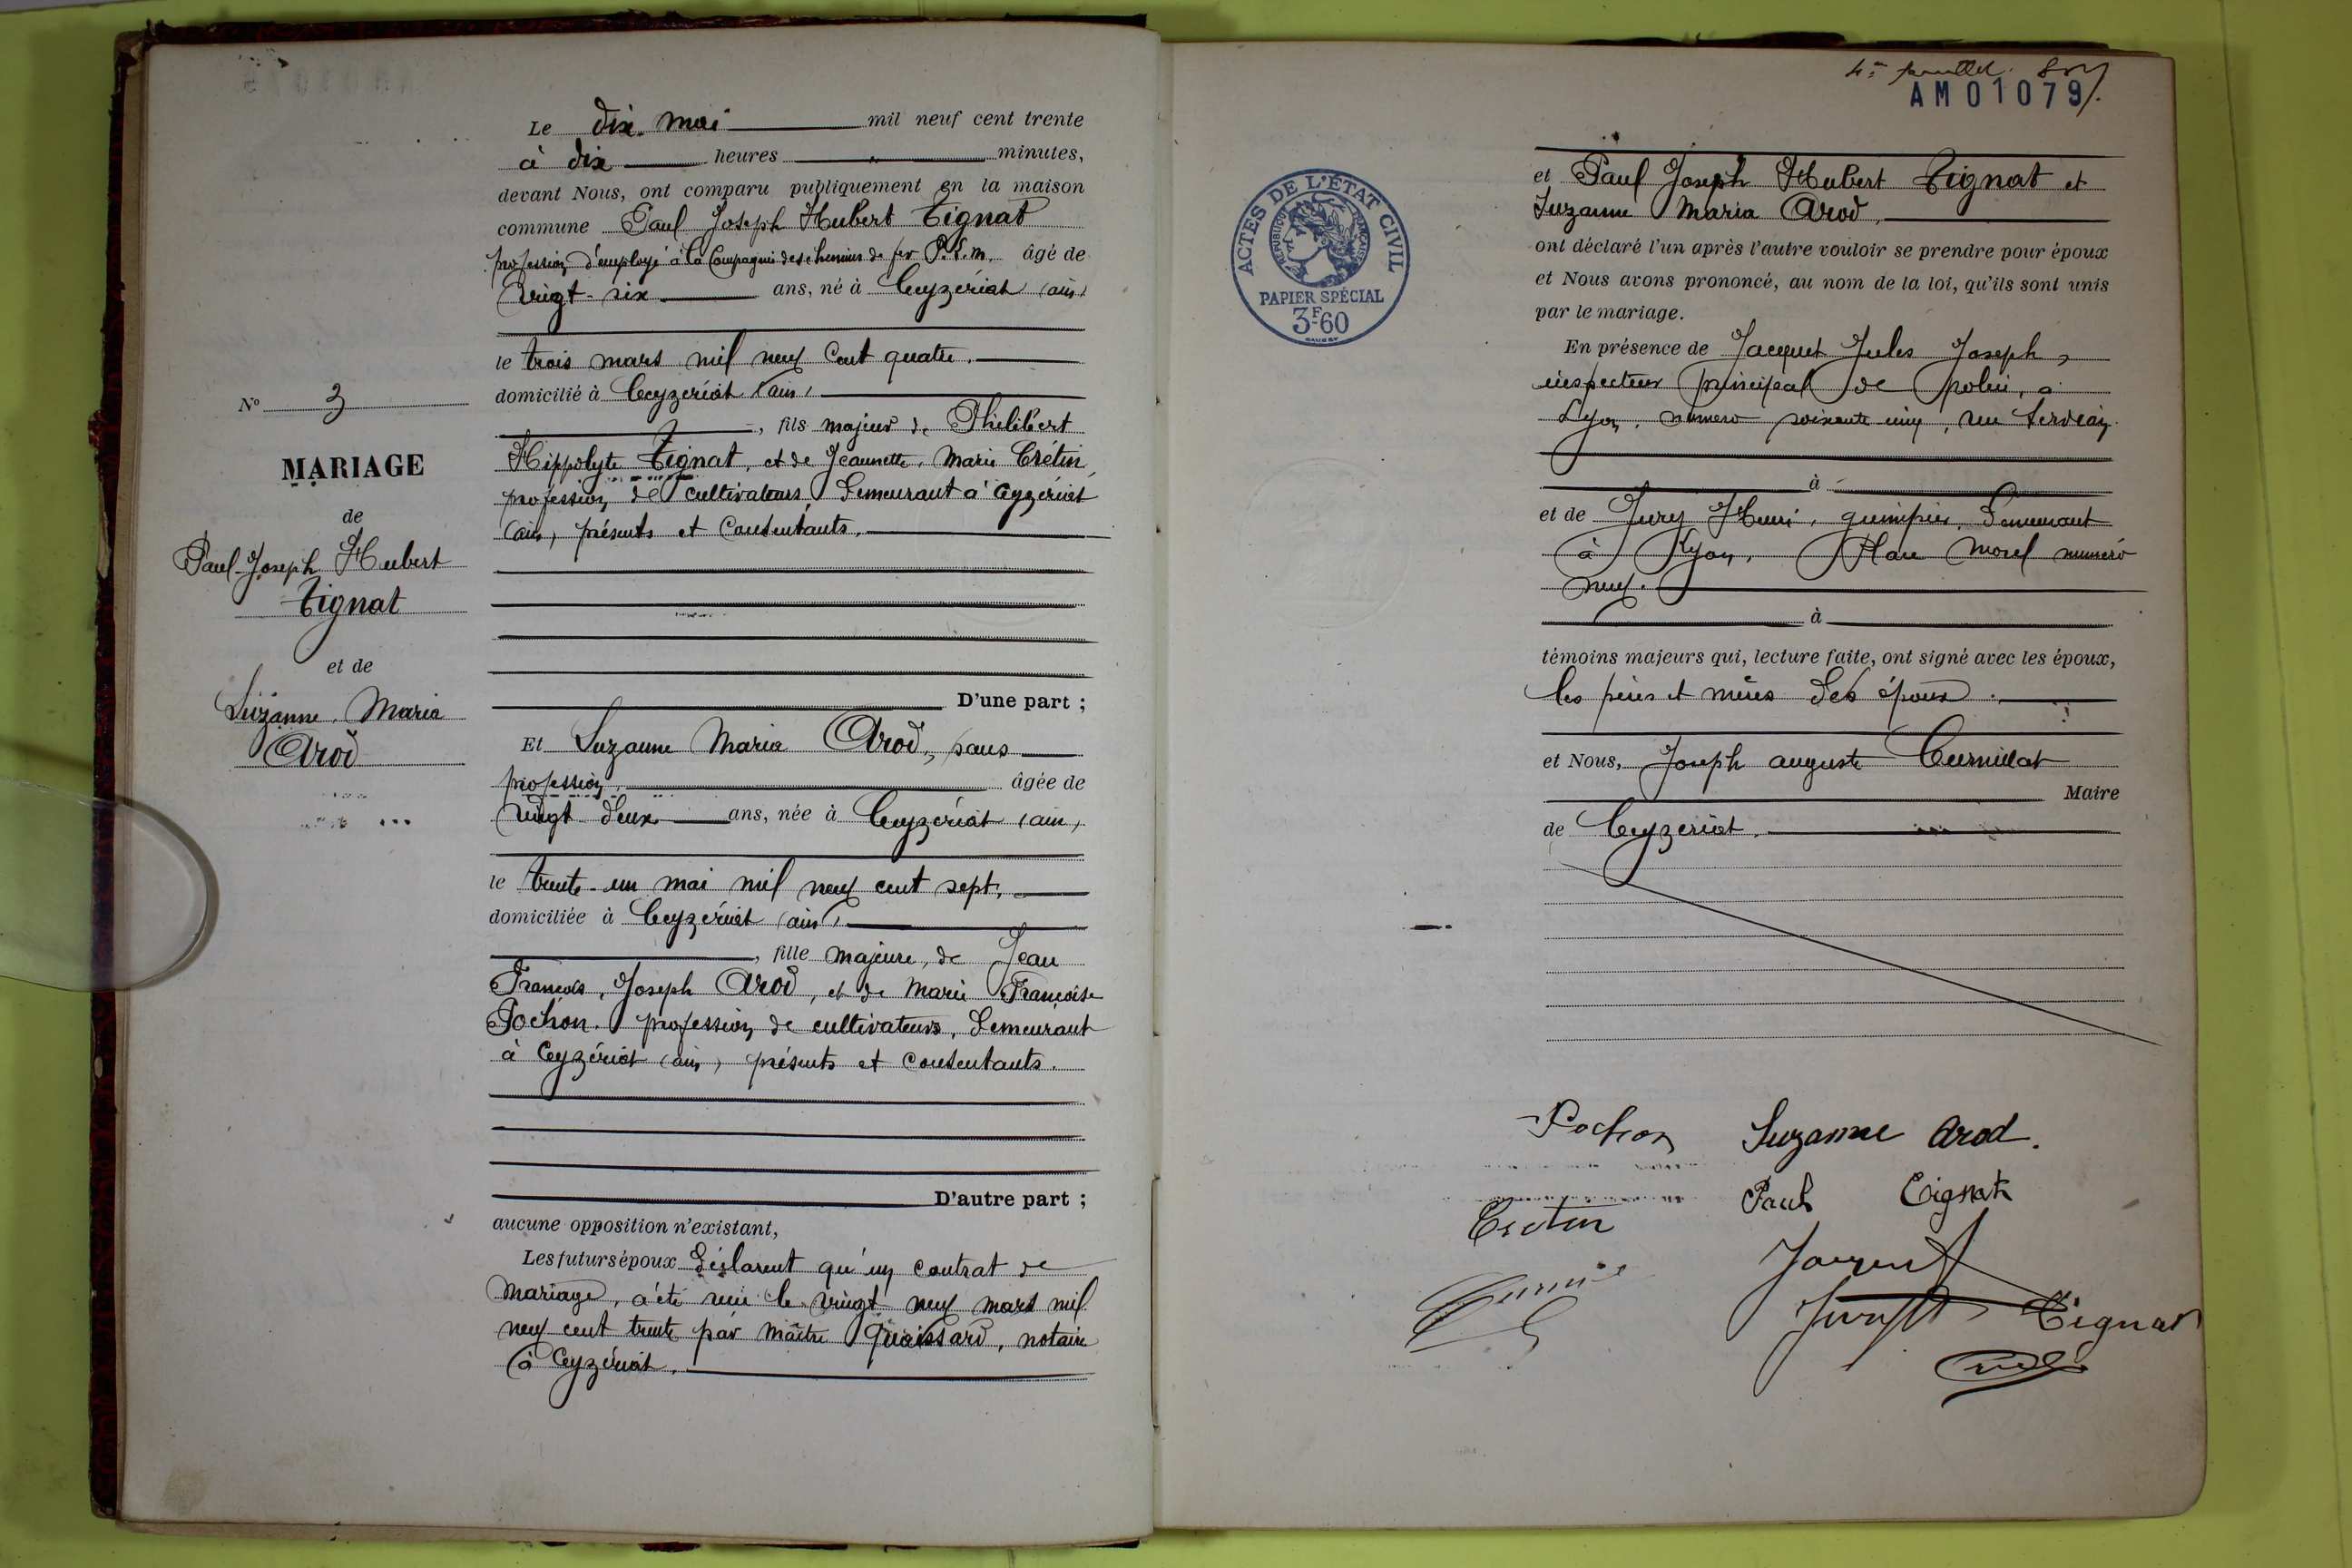 Le dix mai mil neuf cent trente
à dix heures " minutes,
devant Nous, ont comparu publiquement en la maison
commune Paul Joseph Hubert Tignat
profession d'employé à la Compagnie des chemins de fer P.L.M. âgé de
vingt-six ans, né à Ceyzériat (ain)
le trois mars mil neuf cent quatre.
domicilié à Ceyzériat (ain)
, fils majeur de Philibert
Hippolyte Tignat, et de Jeannette, Marie Crétin,
profession de cultivateurs demeurant à Ceyzériat
(ain), présents et consentants.
D'une part ;
Et Suzanne Maria Arod, sans
profession, âgée de
vingt deux ans, née à Ceyzériat (ain)
le trente-un mai mil neuf cent sept,
domiciliée à Ceyzériat (ain),
, fille majeure, de Jean
François, Joseph Arod, et de Marie Françoise
Pochon. profession de cultivateurs, demeurant
à Ceyzériat (ain) présents et consentants.
D'autre part ;
aucune opposition n'existant,
Les futurs époux déclarent qu'un contrat de
mariage, a été reçu le vingt neuf mars mil
neuf cent trente par Maître Quaissard, notaire
à Ceyzériat.
No 3
MARIAGE
de
Paul-Joseph Hubert
Tignat
et de
Suzanne Maria
Arod
4e feuillet.
AM01079
ACTES DE L'ÉTAT CIVIL
REPUBLIQUE FRANÇAISE
PAPIER SPÉCIAL
3F60
et Paul Joseph Hubert Tignat et
Suzanne Maria Arod,
ont déclaré l'un après l'autre vouloir se prendre pour époux
et Nous avons prononcé, au nom de la loi, qu'ils sont unis
par le mariage.
En présence de Jacquet Jules Joseph,
inspecteur principal de police, à
Lyon, numero soixante cinq, rue Servient
à
et de Jury Henri, guimpier, demeurant
à Lyon, Place Morel numéro
neuf.
à
témoins majeurs qui, lecture faite, ont signé avec les époux,
les pères et mères des époux.
et Nous, Joseph auguste Curnillat
Maire
de Ceyzeriat.
Pochon Suzanne Arod.
Paul Tignat
Cretin
Jacquet
Tignat